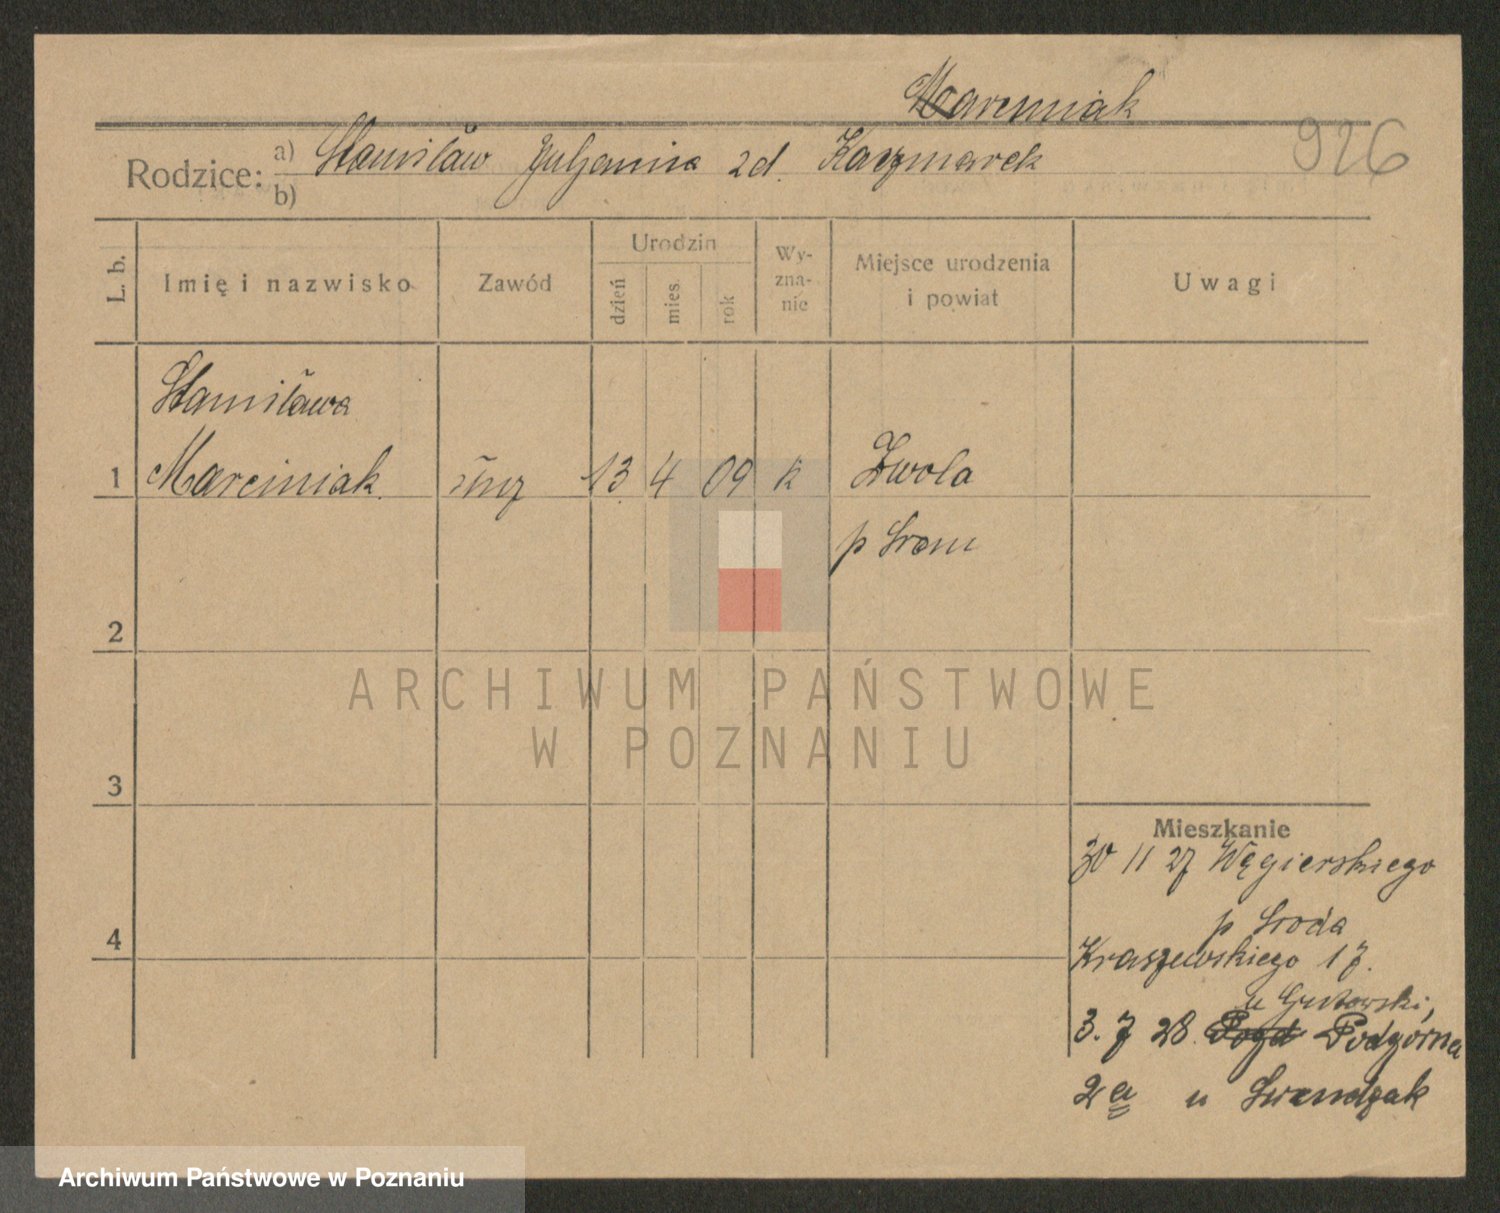 Marciniak
926
Rodzice: a) Stanisław Juljanna zd. Kaczmarek
b)
L. b.
Imię i nazwisko
Zawód
Urodzin
dzień
mies.
rok
Wy-
zna-
nie
Miejsce urodzenia
i powiat
Uwagi
Stanisława
1 Marciniak służ 13 4 09 k Zwola
p Śrem
2
3
4
Mieszkanie
30 11 27 Węgierskiego
p Środa
Kraszewskiego 17.
u Gustowski,
3. 7 28. Podgórna
2a u
ARCHIWUM PAŃSTWOWE
W POZNANIU
Archiwum Państwowe w Poznaniu